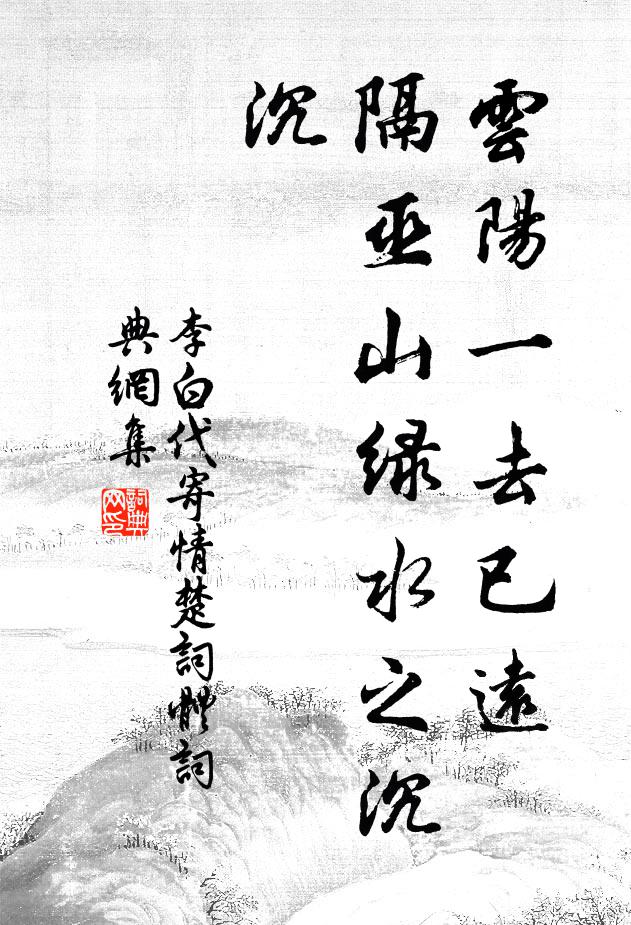 雲陽一去已遠
隔巫山緑水之沉
沉
李白代寄情楚詞體詞
典網集
詞典
网印